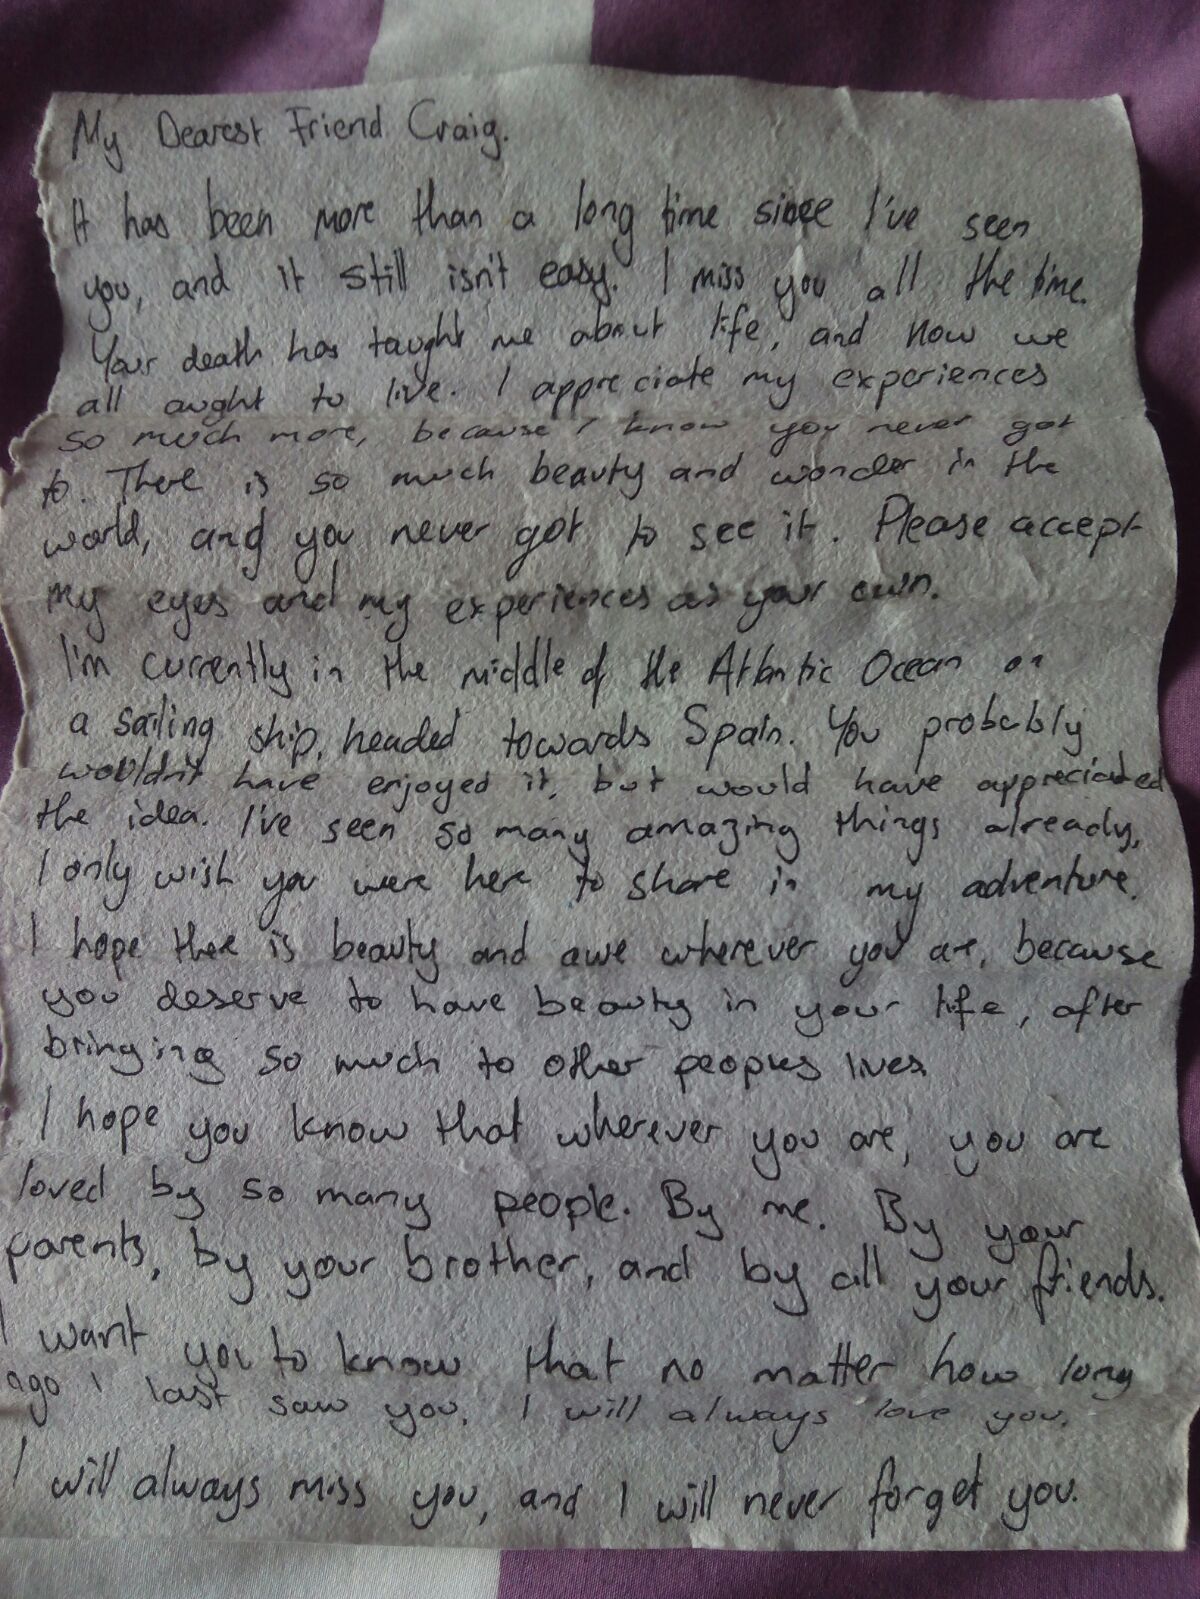 My Dearest Friend Craig.
It has been more than a long time since I've seen
you, and it still isn't easy. I miss you all the time.
Your death has taught me about life, and how we
all aught to live. I appreciate my experiences
so much more, because I know you never got
to. There is so much beauty and wonder in the
world, and you never got to see it. Please accept
my eyes and my experiences as your own.
I'm currently in the middle of the Atlantic Ocean on
a sailing ship, headed towards Spain. You probably
wouldn't have enjoyed it, but would have appreciated
the idea. I've seen so many amazing things already,
I only wish you were here to share in my adventure.
I hope there is beauty and awe wherever you are, because
you deserve to have beauty in your life, after
bringing so much to other peoples lives.
I hope you know that wherever you are, you are
loved by so many people. By me. By your
parents, by your brother, and by all your friends.
I want you to know that no matter how long
ago I last saw you, I will always love you.
I will always miss you, and I will never forget you.